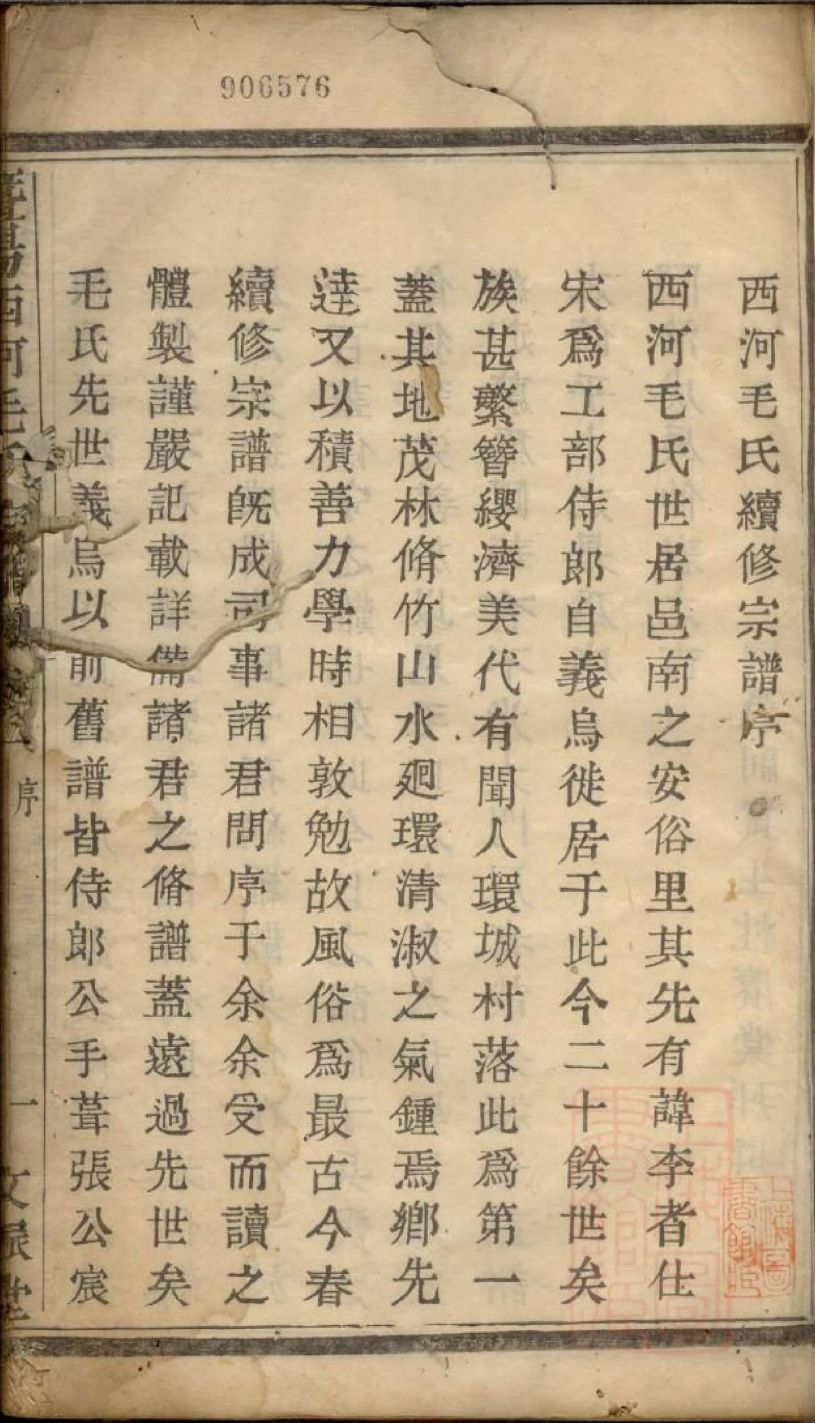 906576
西河毛氏續修宗譜序
西河毛氏世居邑南之安俗里其先有諱李者仕
宋爲工部侍郎自義烏徙居于此今二十餘世矣
族甚繁簪纓濟美代有聞人環城村落此爲第一
蓋其地茂林脩竹山水廻環清淑之氣鍾焉鄉先
逹又以積善力學時相敦勉故風俗爲最古今春
續修宗譜旣成司事諸君問序于余余受而讀之
體製謹嚴記載詳備諸君之脩譜蓋遠過先世矣
毛氏先世義烏以前舊譜皆侍郎公手葺張公宸
西河毛氏宗譜
序
一